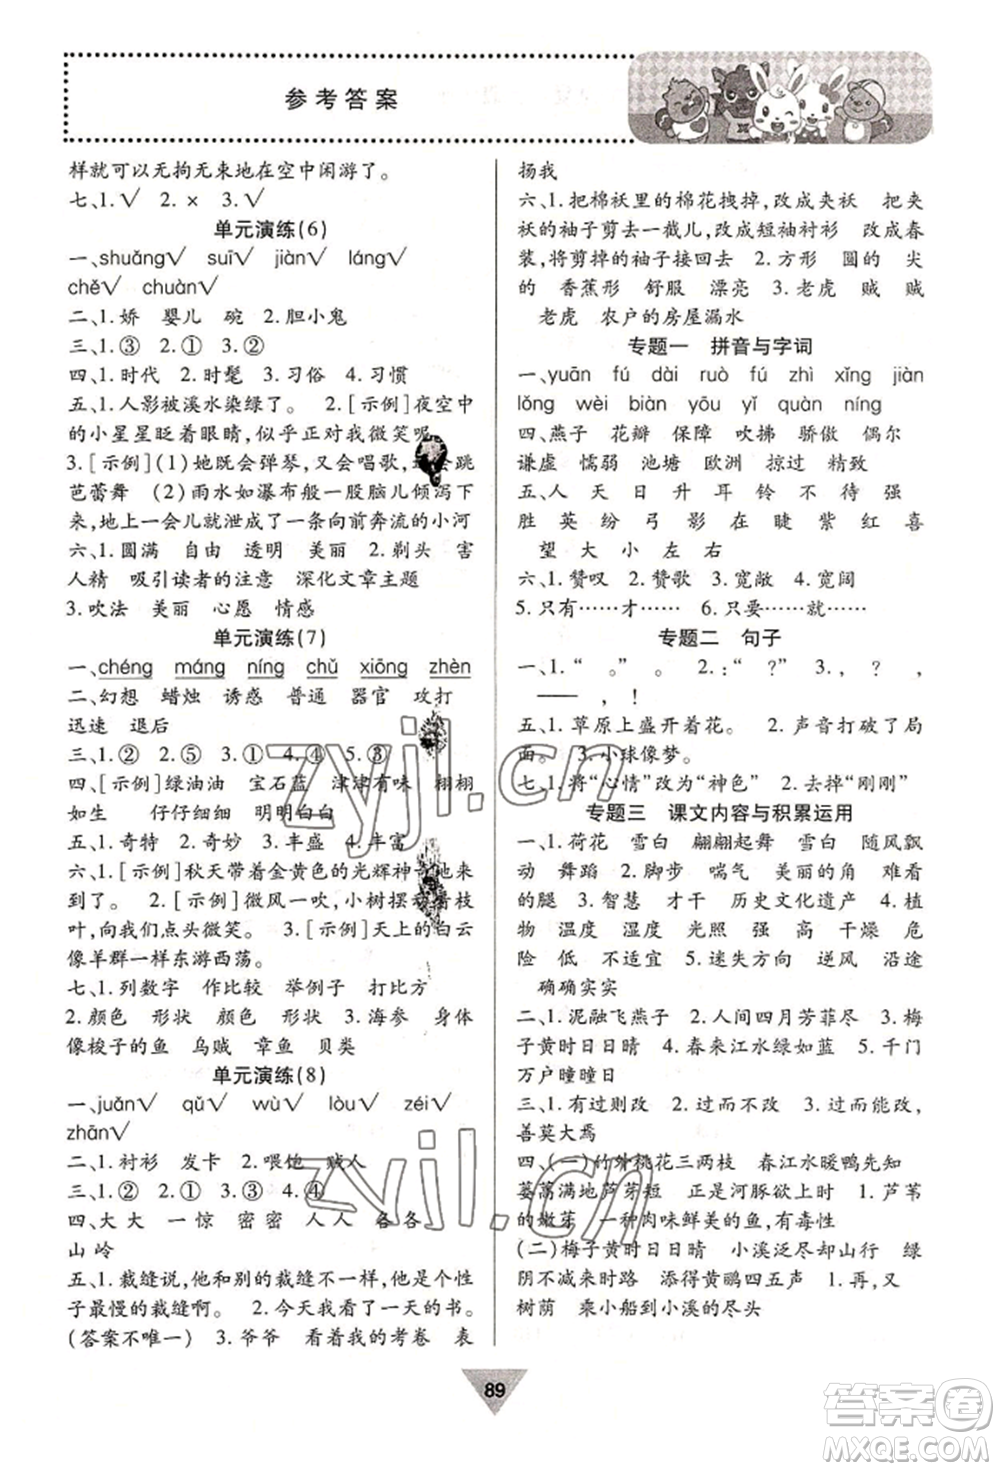 参考答案
样就可以无拘无束地在空中闲游了。
七、1.√ 2.× 3.√
单元演练(6)
一、shuǎng√ suī√ jiàn√ láng√
chě√ chuàn√
二、1.娇 婴儿 碗 2.胆小鬼
三、1.③ 2.① 3.②
四、1.时代 2.时髦 3.习俗 4.习惯
五、1.人影被溪水染绿了。 2.[示例]夜空中
的小星星眨着眼睛,似乎正对我微笑呢。
3.[示例](1)她既会弹琴,又会唱歌,还会跳
芭蕾舞 (2)雨水如瀑布般一股脑儿倾泻下
来,地上一会儿就泄成了一条向前奔流的小河
六、1.圆满 自由 透明 美丽 2.剃头 害
人精 吸引读者的注意 深化文章主题
3.吹法 美丽 心愿 情感
单元演练(7)
一、chéng máng níng chǔ xiōng zhèn
二、幻想 蜡烛 诱惑 普通 器官 攻打
迅速 退后
三、1.② 2.⑤ 3.① 4.④ 5.③
四、[示例]绿油油 宝石蓝 津津有味 栩栩
如生 仔仔细细 明明白白
五、1.奇特 2.奇妙 3.丰盛 4.丰富
六、1.[示例]秋天带着金黄色的光辉神奇地来
到了。 2.[示例]微风一吹,小树摆动着枝
叶,向我们点头微笑。 3.[示例]天上的白云
像羊群一样东游西荡。
七、1.列数字 作比较 举例子 打比方
2.颜色 形状 颜色 形状 3.海参 身体
像梭子的鱼 乌贼 章鱼 贝类
单元演练(8)
一、juǎn√ qǔ√ wù√ lòu√ zéi√
zhān√
二、1.衬衫 发卡 2.喂饱 贼人
三、1.② 2.① 3.③ 4.④
四、大大 一惊 密密 人人 各各
山岭
五、1.裁缝说,他与别的裁缝不一样,他是个性
子最慢的裁缝啊。 2.今天我看了一天的书。
(答案不唯一) 3.爷爷 看着我的考卷 表
扬我
六、1.把棉袄里的棉花拽掉,改成夹袄 把夹
袄的袖子剪去一截儿,改成短袖衬衫 改成春
装,将剪掉的袖子接回去 2.方形 圆的 尖
的 香蕉形 舒服 漂亮 3.老虎 贼 贼
老虎 农户的房屋漏水
专题一 拼音与字词
一、yuān fú dài ruò fú zhì xǐng jiàn
lǒng wèi biàn yōu yǐ quàn níng
四、燕子 花瓣 保障 吹拂 骄傲 偶尔
谦虚 懦弱 池塘 欧洲 掠过 精致
五、人 天 日 升 耳 铃 不 待 强
胜 英 纷 弓 影 在 睫 紫 红 喜
望 大 小 左 右
六、1.赞叹 2.赞歌 3.宽敞 4.宽阔
5.只有……才…… 6.只要……就……
专题二 句子
一、1.“ 。” 。 2.:“ ?” 3., ? ,
—— , !
五、1.草原上盛开着花。 2.声音打破了局
面。 3.小球像梦。
七、1.将“心情”改为“神色” 2.去掉“刚刚”
专题三 课文内容与积累运用
一、1.荷花 雪白 翩翩起舞 雪白 随风飘
动 舞蹈 2.脚步 喘气 美丽的角 难看
的腿 3.智慧 才干 历史文化遗产 4.植
物 温度 湿度 光照 强 高 干燥 危
险 低 不适宜 5.迷失方向 逆风 沿途
确确实实
二、1.泥融飞燕子 2.人间四月芳菲尽 3.梅
子黄时日日晴 4.春来江水绿如蓝 5.千门
万户曈曈日
三、1.有过则改 2.过而不改 3.过而能改,
善莫大焉
四、(一)竹外桃花三两枝 春江水暖鸭先知
蒌蒿满地芦芽短 正是河豚欲上时 1.芦苇
的嫩芽 一种肉味鲜美的鱼,有毒性
(二)梅子黄时日日晴 小溪泛尽却山行 绿
阴不减来时路 添得黄鹂四五声 1.再,又
树荫 乘小船到小溪的尽头
89
zyjl.cn
zyjl.cn
答案圈
MXQE.COM